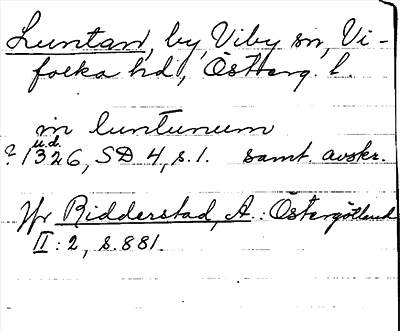 Luntan, by, Viby sn, Vi-
folka hd, Österg. l.
in luntunum
u.d.
? 1326, SD 4, s. 1. samt. avskr.
Jfr Ridderstad, A.: Östergötland
II: 2, s. 881.